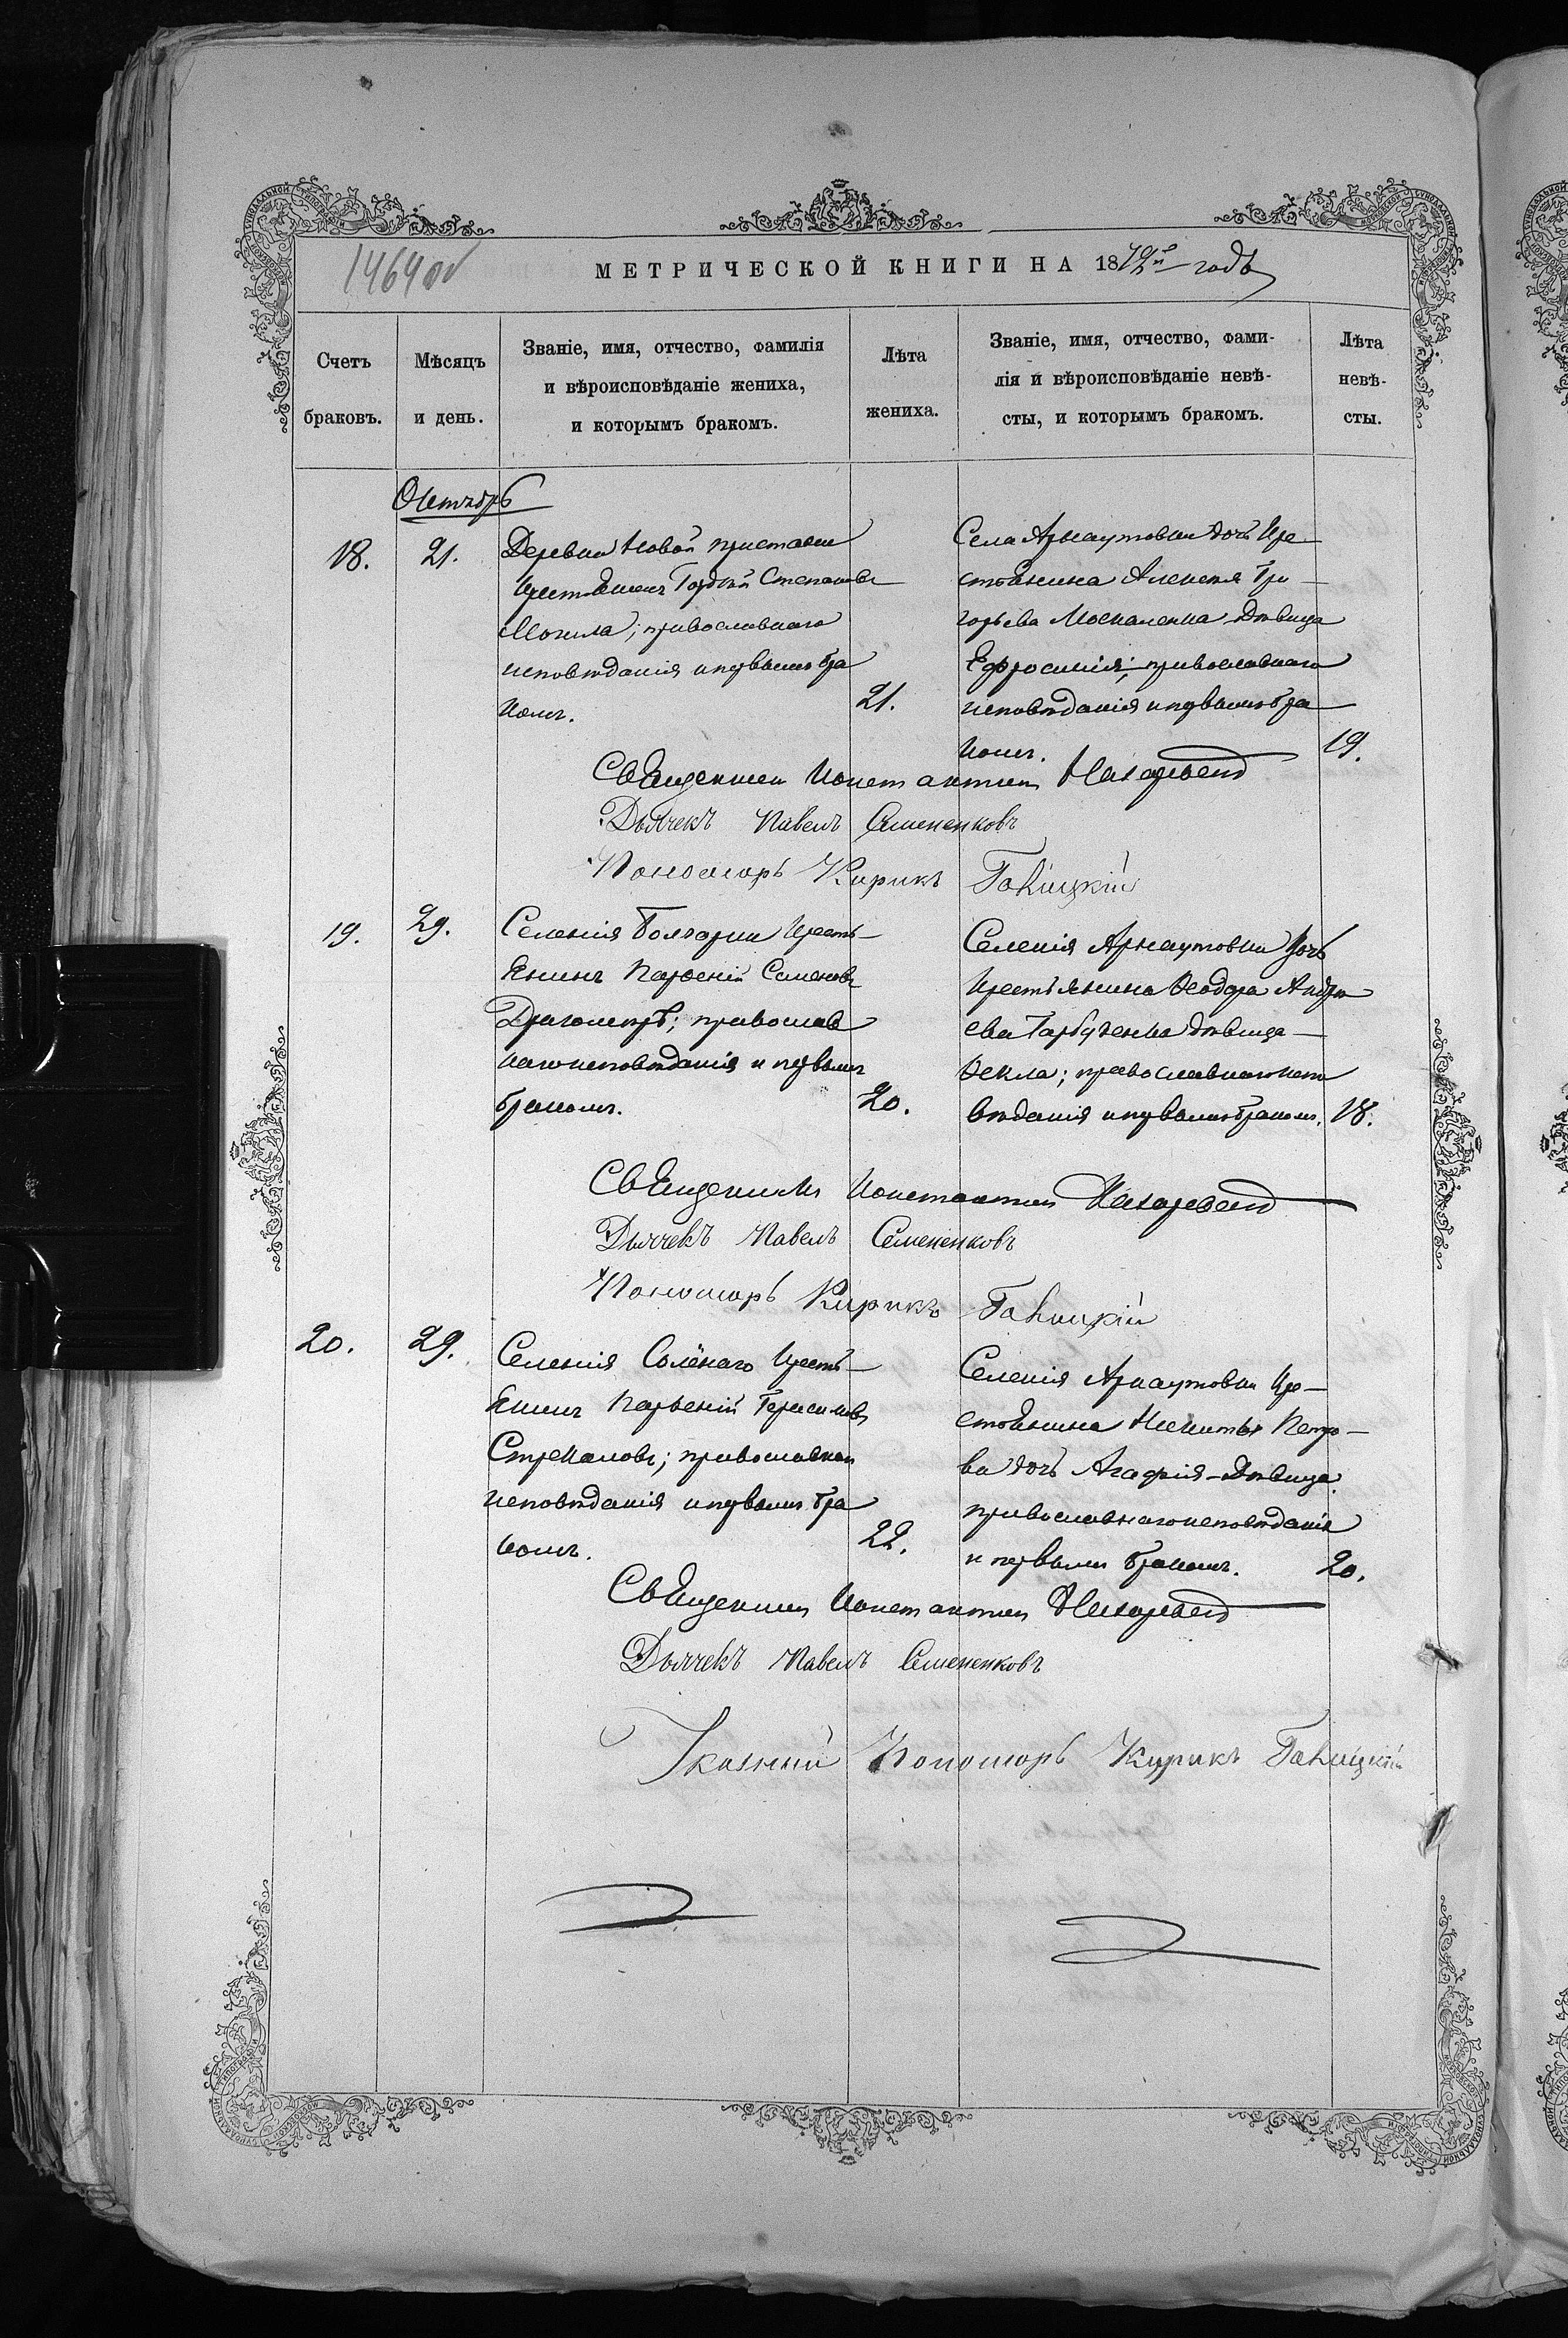 1464 об
МЕТРИЧЕСКОЙ КНИГИ НА 1879й годъ
Счетъ браковъ.
Мѣсяцъ и день.
Званіе, имя, отчество, фамилія
и вѣроисповѣданіе жениха,
и которымъ бракомъ.
Лѣта
жениха.
Званіе, имя, отчество, фами-
лія и вѣроисповѣданіе невѣ-
сты, и которымъ бракомъ.
Лѣта
невѣ-
сты.
Октябрь
18. 21.
Деревни Новой
крестьянинъ Гордѣй Степановъ
Могила; православнаго
исповѣданія и первымъ бра
комъ. 21.
Села Арнаутовки дочь кре-
стьянина Алексѣя Гри-
горьева Москаленка дѣвица
Ефросинія; православнаго
исповѣданія и первымъ бра
комъ. 19.
Священникъ Константинъ
Дьячекъ Павелъ Семененковъ
Пономарь Кирикъ Галицкій
19. 29.
Селенія Болгарки кресть-
янинъ Парѳеній Семеновъ
православ
наго исповѣданія и первымъ
бракомъ. 20.
Селенія Арнаутовки дочь
крестьянина Ѳеодора Андре
ева Гарбузенка дѣвица
Ѳекла; православнаго испо
вѣданія и первымъ бракомъ. 18.
Священникъ Константинъ
Дьячекъ Павелъ Семененковъ
Пономарь Кирикъ Галицкій
20. 29.
Селенія Солёнаго кресть-
янинъ Парѳеній Герасимовъ
Стрекаловъ; православнаго
исповѣданія и первымъ бра
комъ. 22.
Селенія Арнаутовки кре-
стьянина Никиты Петро-
ва дочь Агафія дѣвица
православнаго исповѣданія
и первымъ бракомъ. 20.
Священникъ Константинъ
Дьячекъ Павелъ Семененковъ
Указный Пономарь Кирикъ Галицкій